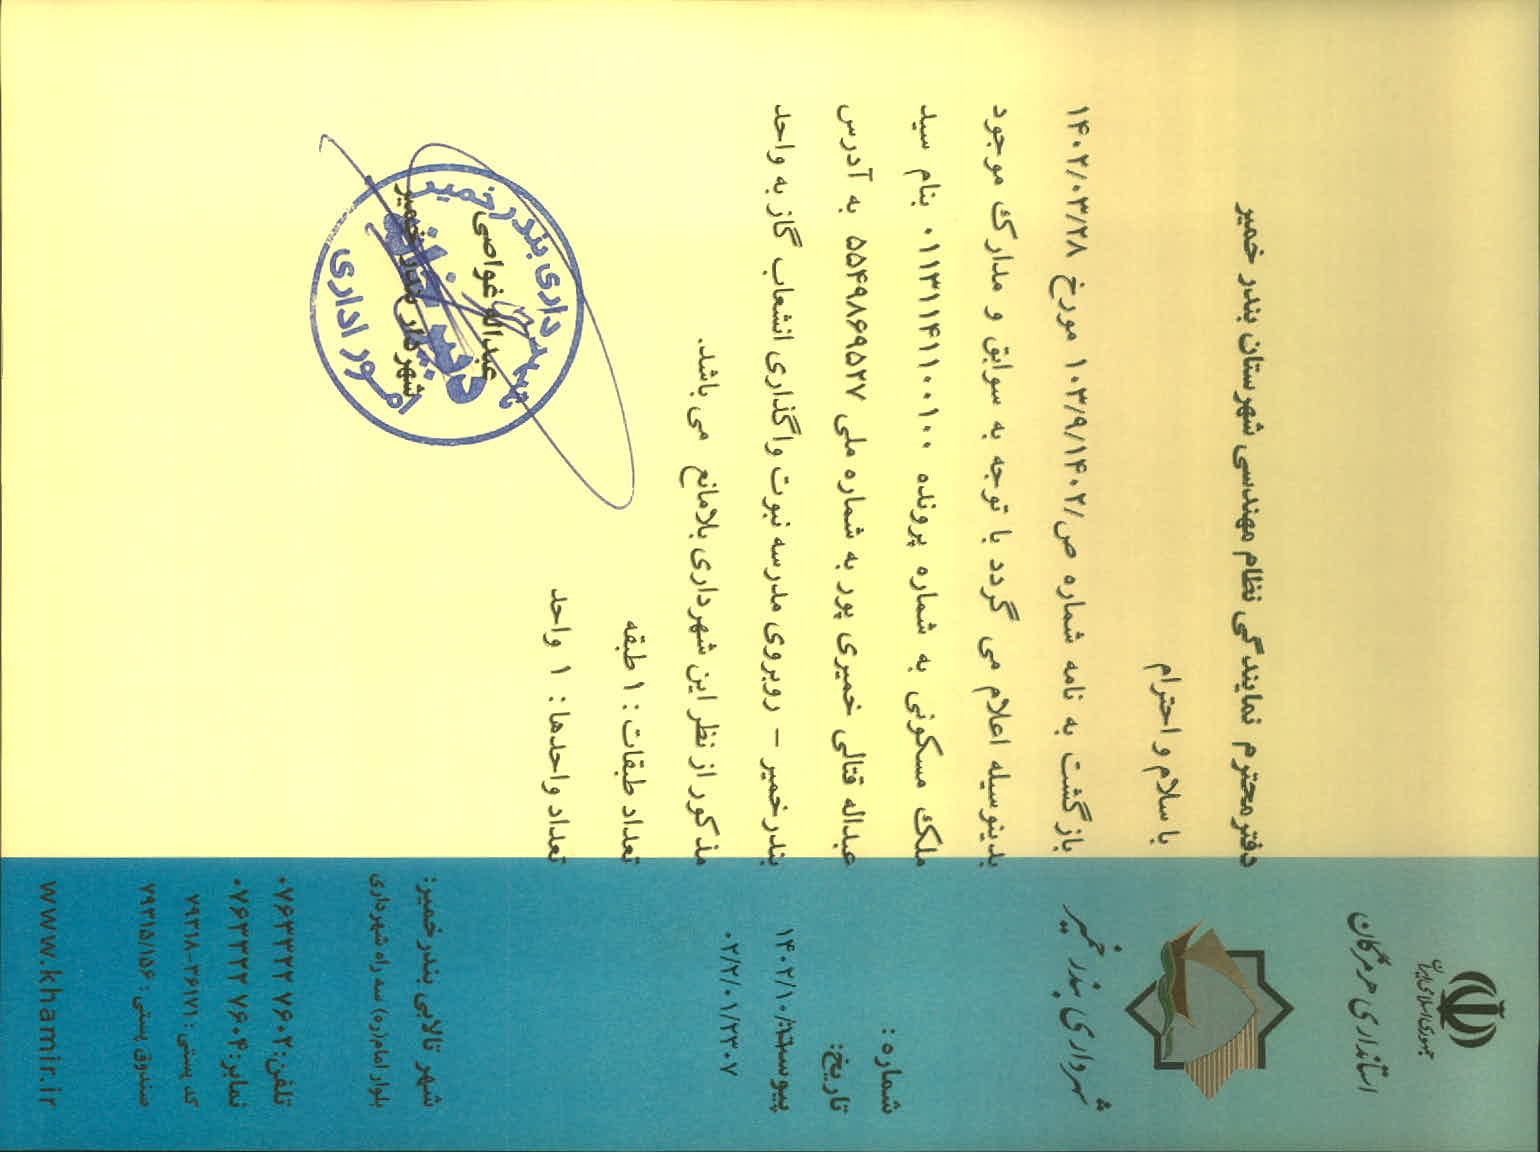 جمهوری اسلامی ایران
استانداری هرمزگان
شهرداری بندر خمیر
شماره :
تاریخ:
پیوست
۱۴۰۲/۱۰/
۰۲/۲/۰۱/۲۳۰۷
دفتر محترم نمایندگی نظام مهندسی شهرستان بندر خمیر
با سلام و احترام
بازگشت به نامه شماره ص/۱۰۳/۹/۱۴۰۲ مورخ ۱۴۰۲/۰۳/۲۸
بدینوسیله اعلام می گردد با توجه به سوابق و مدارک موجود
ملک مسکونی به شماره پرونده ۰۱۱۳۱۱۴۱۱۰۰۱۰۰ بنام سید
عبداله قتالی خمیری پور به شماره ملی ۵۵۴۹۸۶۹۵۲۷ به آدرس
بندرخمیر – روبروی مدرسه نبوت واگذاری انشعاب گاز به واحد
مذکور از نظر این شهرداری بلامانع می باشد.
تعداد طبقات : ۱ طبقه
تعداد واحدها : ۱ واحد
عبداله غواصی
شهردار بندر خمیر
شهرداری بندر خمیر
دبیرخانه
امور اداری
شهر تالابی بندرخمیر:
بلوار امام(ره) سه راه شهرداری
تلفن: ۰۷۶۳۳۲۲ ۷۶۰۲
نمابر: ۰۷۶۳۳۲۲ ۷۶۰۴
کد پستی : ۷۹۳۱۸-۳۶۱۷۱
صندوق پستی : ۷۹۳۱۵/۱۵۶
www.khamir.ir